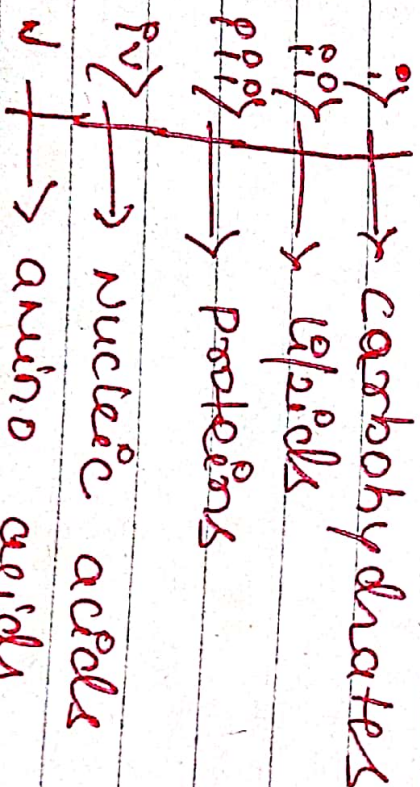 i> → Carbohydrates
ii> → Lipids
iii> → Proteins
iv> → Nucleic acids
v → amino acids